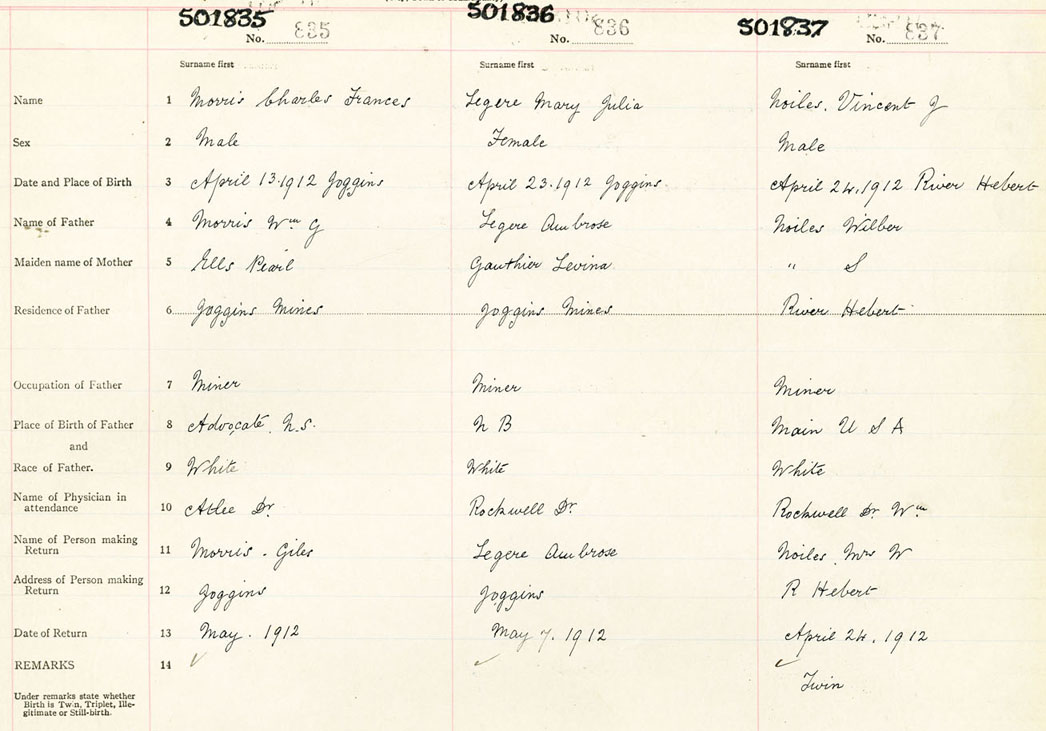 501835 501836 501837
No. 835 No. 836 No. 837
Surname first Surname first Surname first
Name 1 Morris Charles Frances Legere Mary Julia Noiles, Vincent J
Sex 2 Male Female Male
Date and Place of Birth 3 April 13.1912 Joggins April 23.1912 Joggins. April 24, 1912 River Hebert
Name of Father 4 Morris Wm G Legere Ambrose Noiles Wilber
Maiden name of Mother 5 Ells Pearl Gauthier Levina " S
Residence of Father 6 Joggins Mines Joggins Mines River Hebert
Occupation of Father 7 Miner Miner Miner
Place of Birth of Father 8 Advocate N.S. N B Main U S A
and
Race of Father. 9 White White White
Name of Physician in
attendance 10 Atlee Dr. Rockwell Dr. Rockwell Dr. Wm
Name of Person making
Return 11 Morris - Giles Legere Ambrose Noiles Mrs W
Address of Person making
Return 12 Joggins Joggins R Hebert
Date of Return 13 May. 1912 May 7. 1912 April 24, 1912
REMARKS 14 ✓ ✓ ✓
Twin
Under remarks state whether
Birth is Twin, Triplet, Ille-
gitimate or Still-birth.